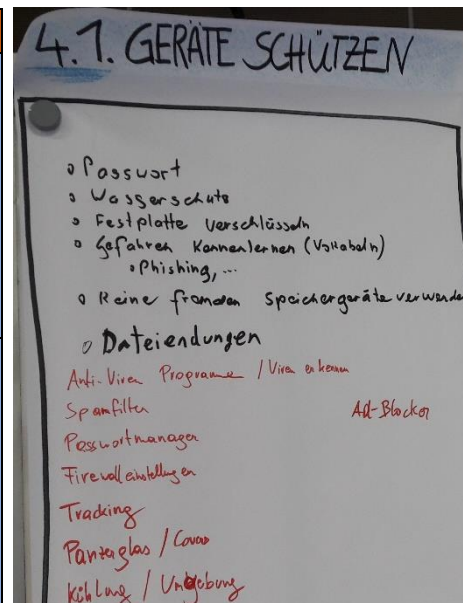 4.1. GERÄTE SCHÜTZEN
o Passwort
o Wasserschutz
o Festplatte verschlüsseln
o Gefahren kennenlernen (Vokabeln)
o Phishing, ...
o Keine fremden Speichergeräte verwende
o Dateiendungen
Anti-Viren Programme / Viren erkennen
Spamfilter Ad-Blocker
Passwortmanager
Firewalleinstellungen
Tracking
Panzerglas / Cover
Kühlung / Umgebung